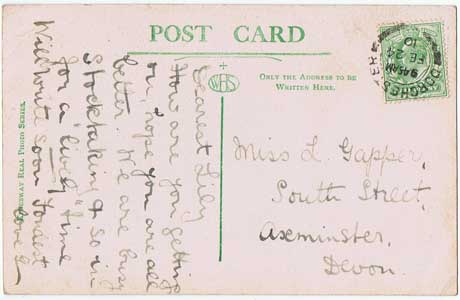 POST CARD
WHS
ONLY THE ADDRESS TO BE
WRITTEN HERE.
KINGSWAY REAL PHOTO SERIES.
DORCHESTER
9 45 AM
FE 2
10
Dearest Lily
How are you getting
on, hope you are all
better. We are busy
Stocktaking & so in
for a "lively" time
Will write soon Fondest
love
Miss L. Gapper,
South Street,
Axminster,
Devon.